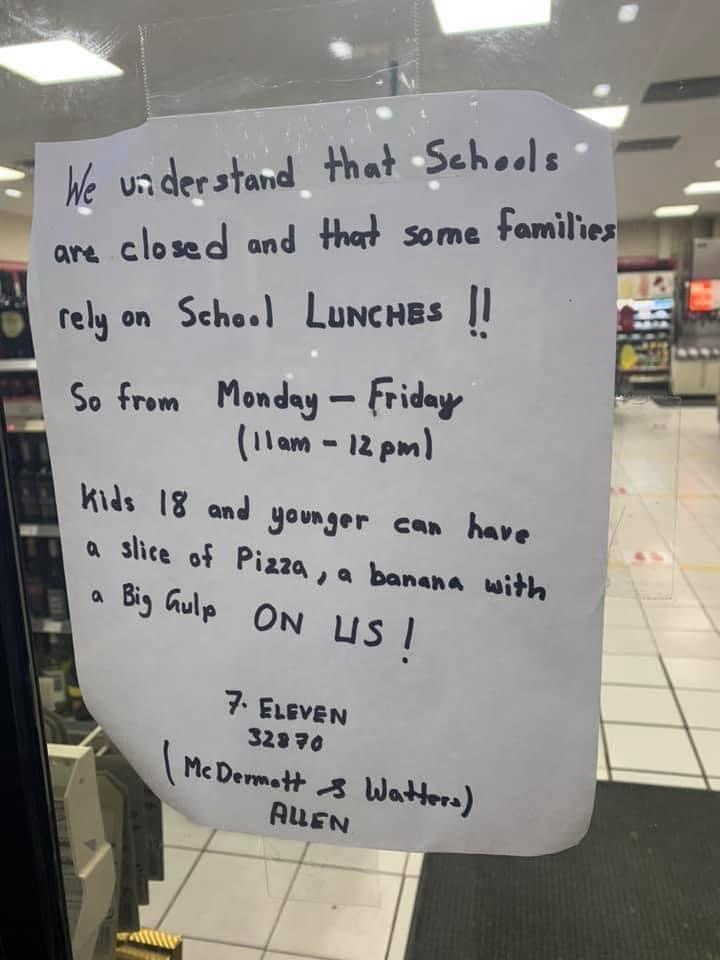 We understand that Schools
are closed and that some families
rely on School LUNCHES !!
So from Monday - Friday
(11am - 12pm)
Kids 18 and younger can have
a slice of Pizza, a banana with
a Big Gulp ON US!
7. ELEVEN
32870
(McDermott & Watters)
ALLEN